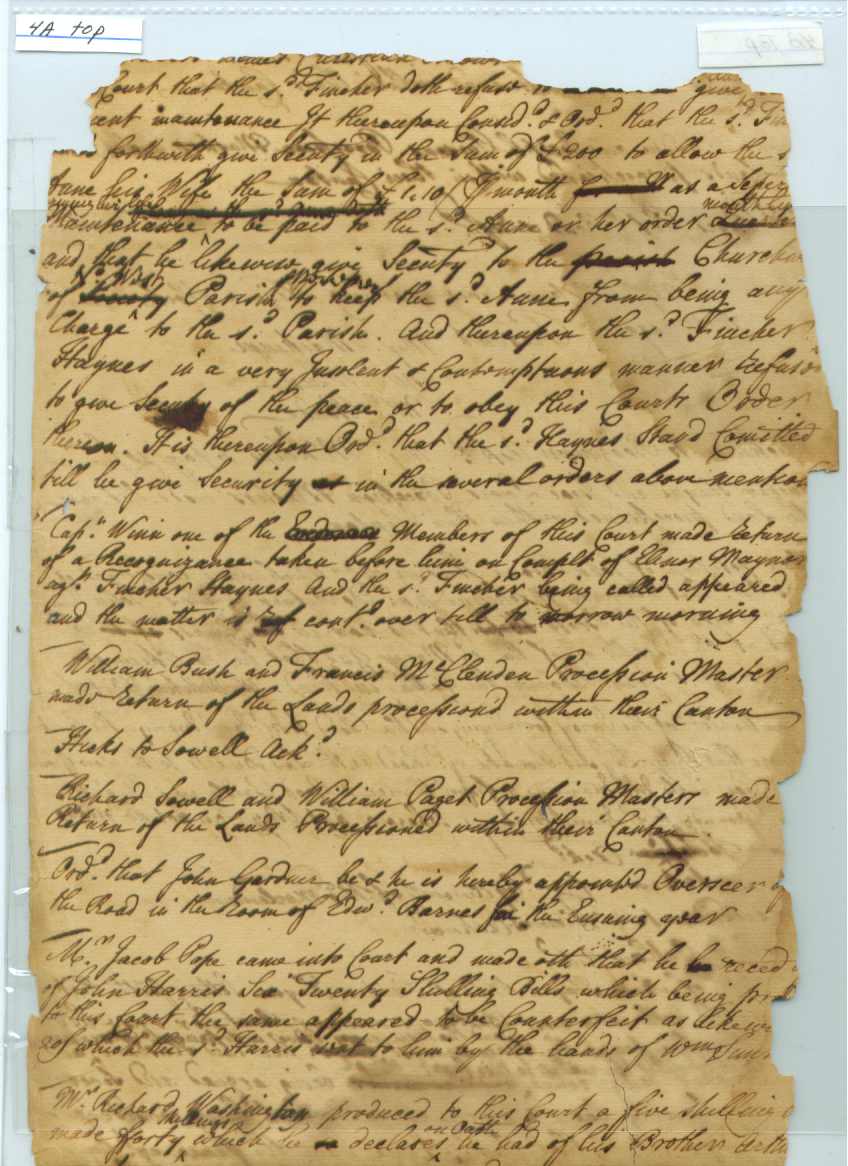 4A top
Court that the s.d Fincher doth refuse to give
maintenance It thereupon Consid.d & Ord.d that the s.d Fin
forthwith give Security in the Sum of £200 to allow the s
Anne his Wife the Sum of £1.10/ P month as a Separ
Maintenance to be paid to the s.d Anne or her order
and that he likewise give Security to the parish Church
of Society Parish to keep the s.d Anne from being any
Charge to the s.d Parish. And thereupon the s.d Fincher
Haynes in a very Insolent & Contemptuous manner Refus
to give Security of the peace or to obey this Courts Order
thereon. It is thereupon Ord.d that the s.d Haynes Stand Comitted
till he give Security as in the several orders above mention
Cap.n Winn one of the Members of this Court made Return
of a Recognizance taken before him on Complt of Elinor Maynor
ag.t Fincher Haynes And the s.d Fincher being called appeared
and the matter is ref cont.d over till to morrow morning
William Bush and Francis McClenden Procession Master
made Return of the Lands processiond within their Canton
Hicks to Sowell Ack.d
Richard Sowell and William Paget Procession Masters made
Return of the Lands Processioned within their Canton
Ord.d that John Gardner be & he is hereby appointed Overseer
the Road in the Room of Edw.d Barnes for the Ensuing year
M.r Jacob Pope came into Court and made oth that he be reced
of John Harris Sea Twenty Shilling Bills which being
to this Court the same appeared to be Counterfeit as likew
of which the s.d Harris sent to him by the hands of Wm
M.r Richard Washington produced to this Court a five shilling
made fforty which he declares on Oath he had of his Brother Arth